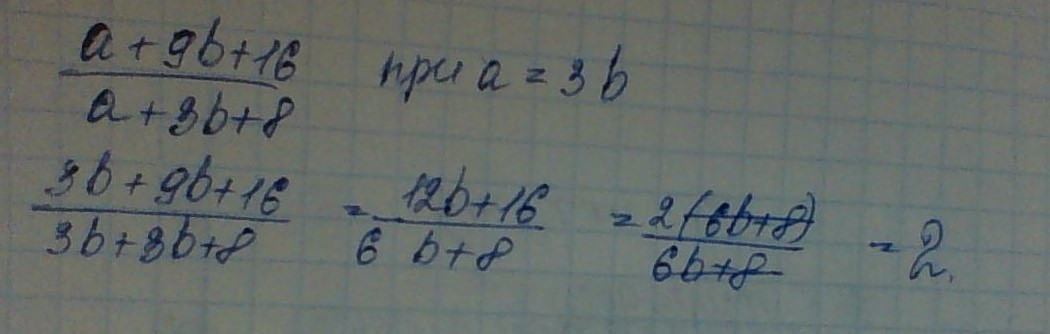 a + 9b + 16 / a + 3b + 8 при a = 3b
3b + 9b + 16 / 3b + 3b + 8 = 12b + 16 / 6 b + 8 = 2(6b + 8) / 6b + 8 = 2.